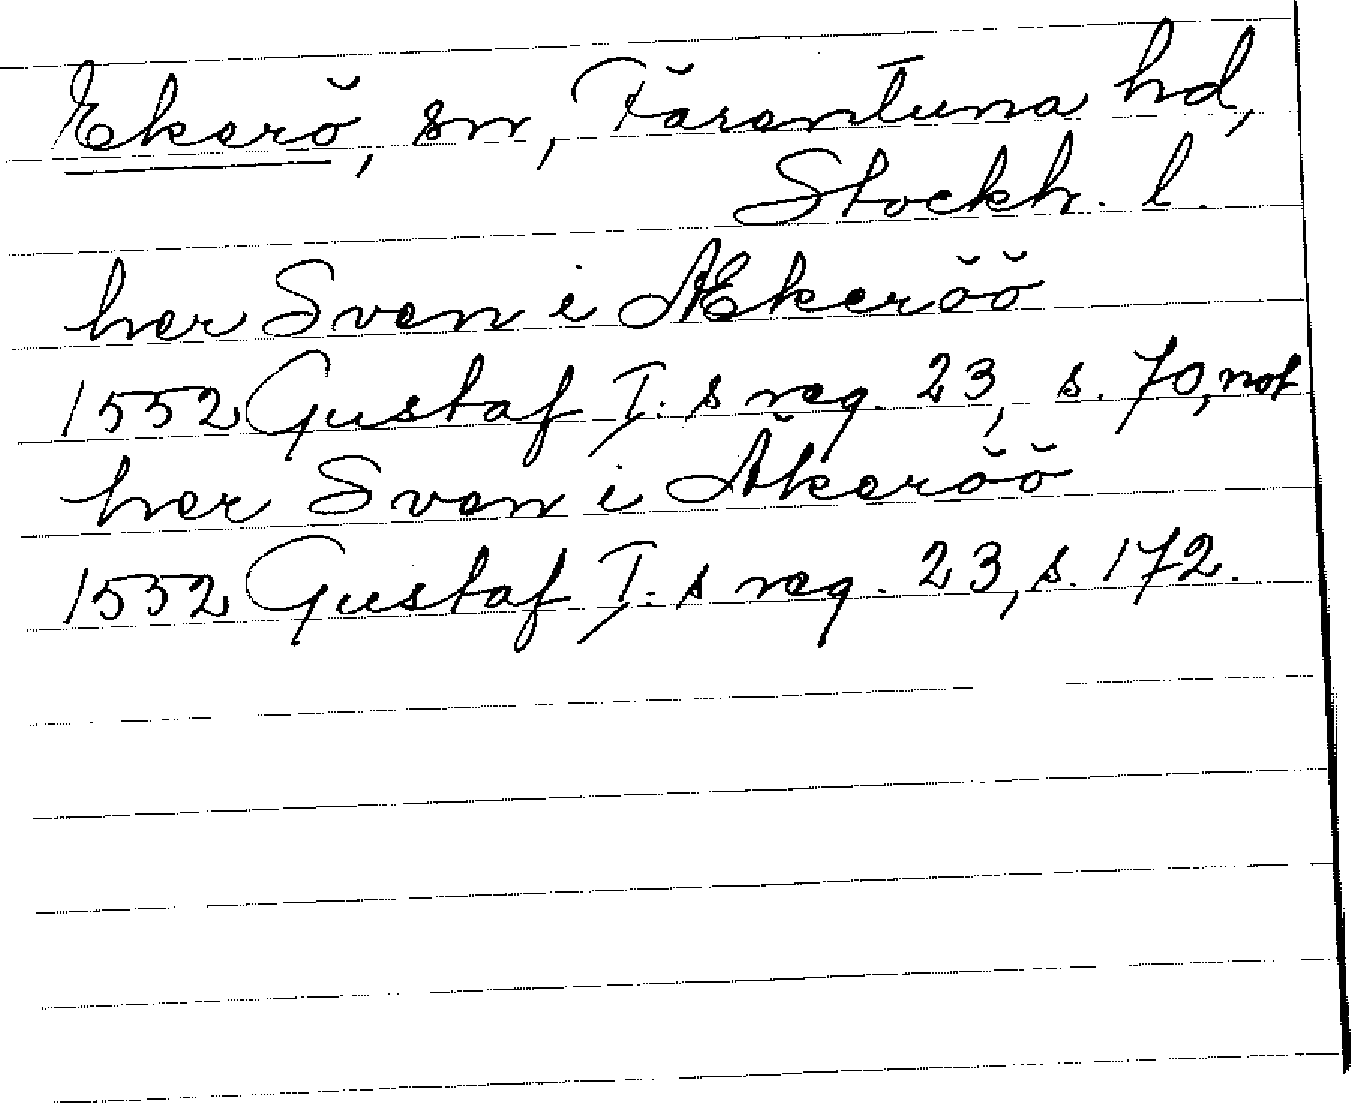 Ekerö, sn, Färentuna hd,
Stockh. l.
her Sven i Ækeröö
1552 Gustaf I:s reg. 23, s. 70, not
her Sven i Äkeröö
1552 Gustaf I:s reg. 23, s. 172.